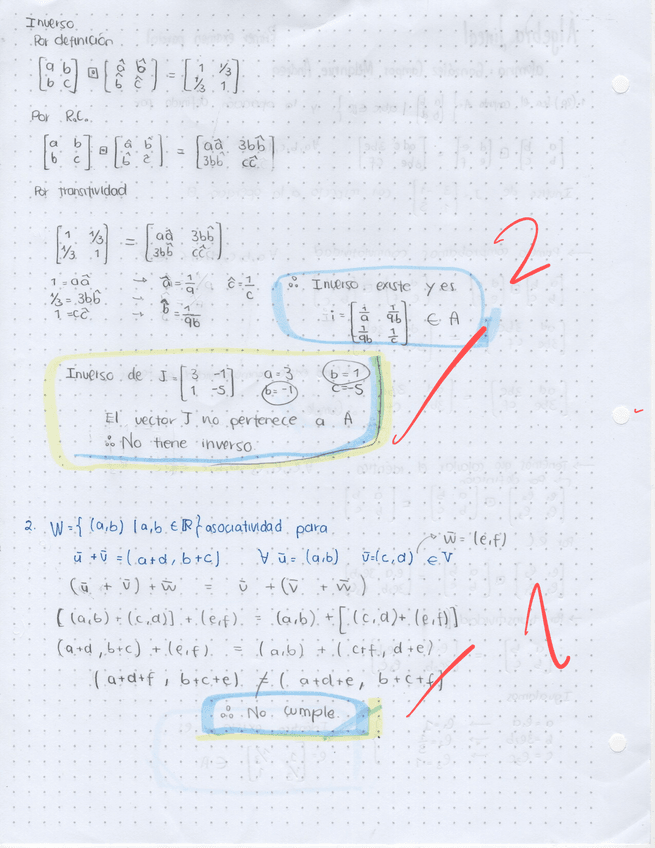 Inverso.
Por definición
[a b; b c] ⊡ [â b̂; b̂ ĉ] = [1 1/3; 1/3 1]
Por R.C.
[a b; b c] ⊡ [â b̂; b̂ ĉ] = [aâ 3bb̂; 3bb̂ cĉ]
Por transitividad
[1 1/3; 1/3 1] = [aâ 3bb̂; 3bb̂ cĉ]
1 = aâ → â = 1/a ĉ = 1/c
1/3 = 3bb̂ → b̂ = 1/9b
1 = cĉ
∴ Inverso existe y es
i = [1/a 1/9b; 1/9b 1/c] ∈ A
2
Inverso de J = [3 -1; 1 -5] a=3 b=1
b=-1 c=-5
El vector J no pertenece a A
∴ No tiene inverso.
2. W={ (a,b) | a,b ∈ ℝ} asociatividad para
w̄ = (e,f)
ū + v̄ = (a+d, b+c) ∀ ū = (a,b) v̄=(c,d) ∈ V
(ū + v̄) + w̄ = ū + (v̄ + w̄)
[(a,b) + (c,d)] + (e,f) = (a,b) + [(c,d) + (e,f)]
(a+d, b+c) + (e,f) = (a,b) + (c+f, d+e)
(a+d+f, b+c+e) ≠ (a+d+e, b+c+f)
∴ No cumple.
1